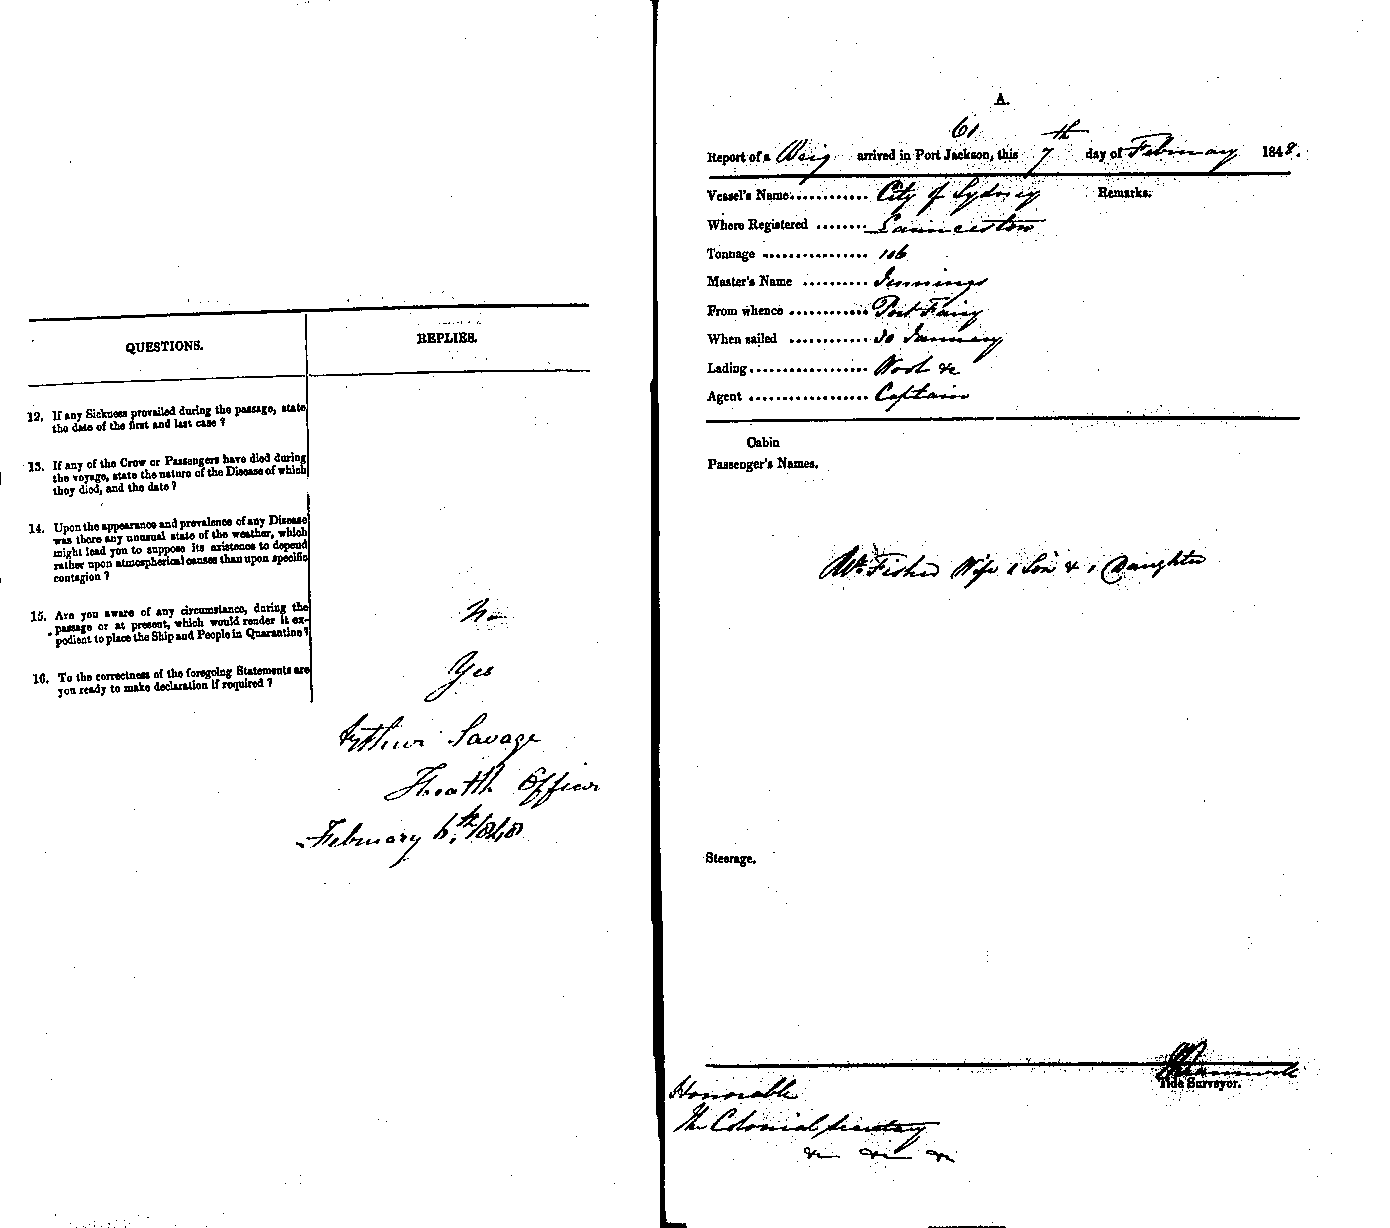 QUESTIONS. REPLIES.
12. If any Sickness prevailed during the passage, state
the date of the first and last case ?
13. If any of the Crew or Passengers have died during
the voyage, state the nature of the Disease of which
they died, and the date ?
14. Upon the appearance and prevalence of any Disease
was there any unusual state of the weather, which
might lead you to suppose its existence to depend
rather upon atmospherical causes than upon specific
contagion ?
15. Are you aware of any circumstance, during the
passage or at present, which would render it ex-
pedient to place the Ship and People in Quarantine ?
No
16. To the correctness of the foregoing Statements are
you ready to make declaration if required ?
Yes
Arthur Savage
Health Officer
February 6th 1848
A.
61
Report of a Brig arrived in Port Jackson, this 7th day of February 1848.
Vessel's Name............ City of Sydney Remarks.
Where Registered ........ Launceston
Tonnage ................ 106
Master's Name .......... Jennings
From whence ............ Port Fairy
When sailed ............ 30 January
Lading.................. Wool &c
Agent .................. Captain
Cabin
Passenger's Names.
Mr Fisher Wife 1 Son & 1 Daughter
Steerage.
Tide Surveyor.
Honorable
The Colonial Secretary
&c &c &c